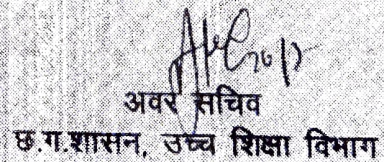 अवर सचिव
छ.ग.शासन, उच्च शिक्षा विभाग